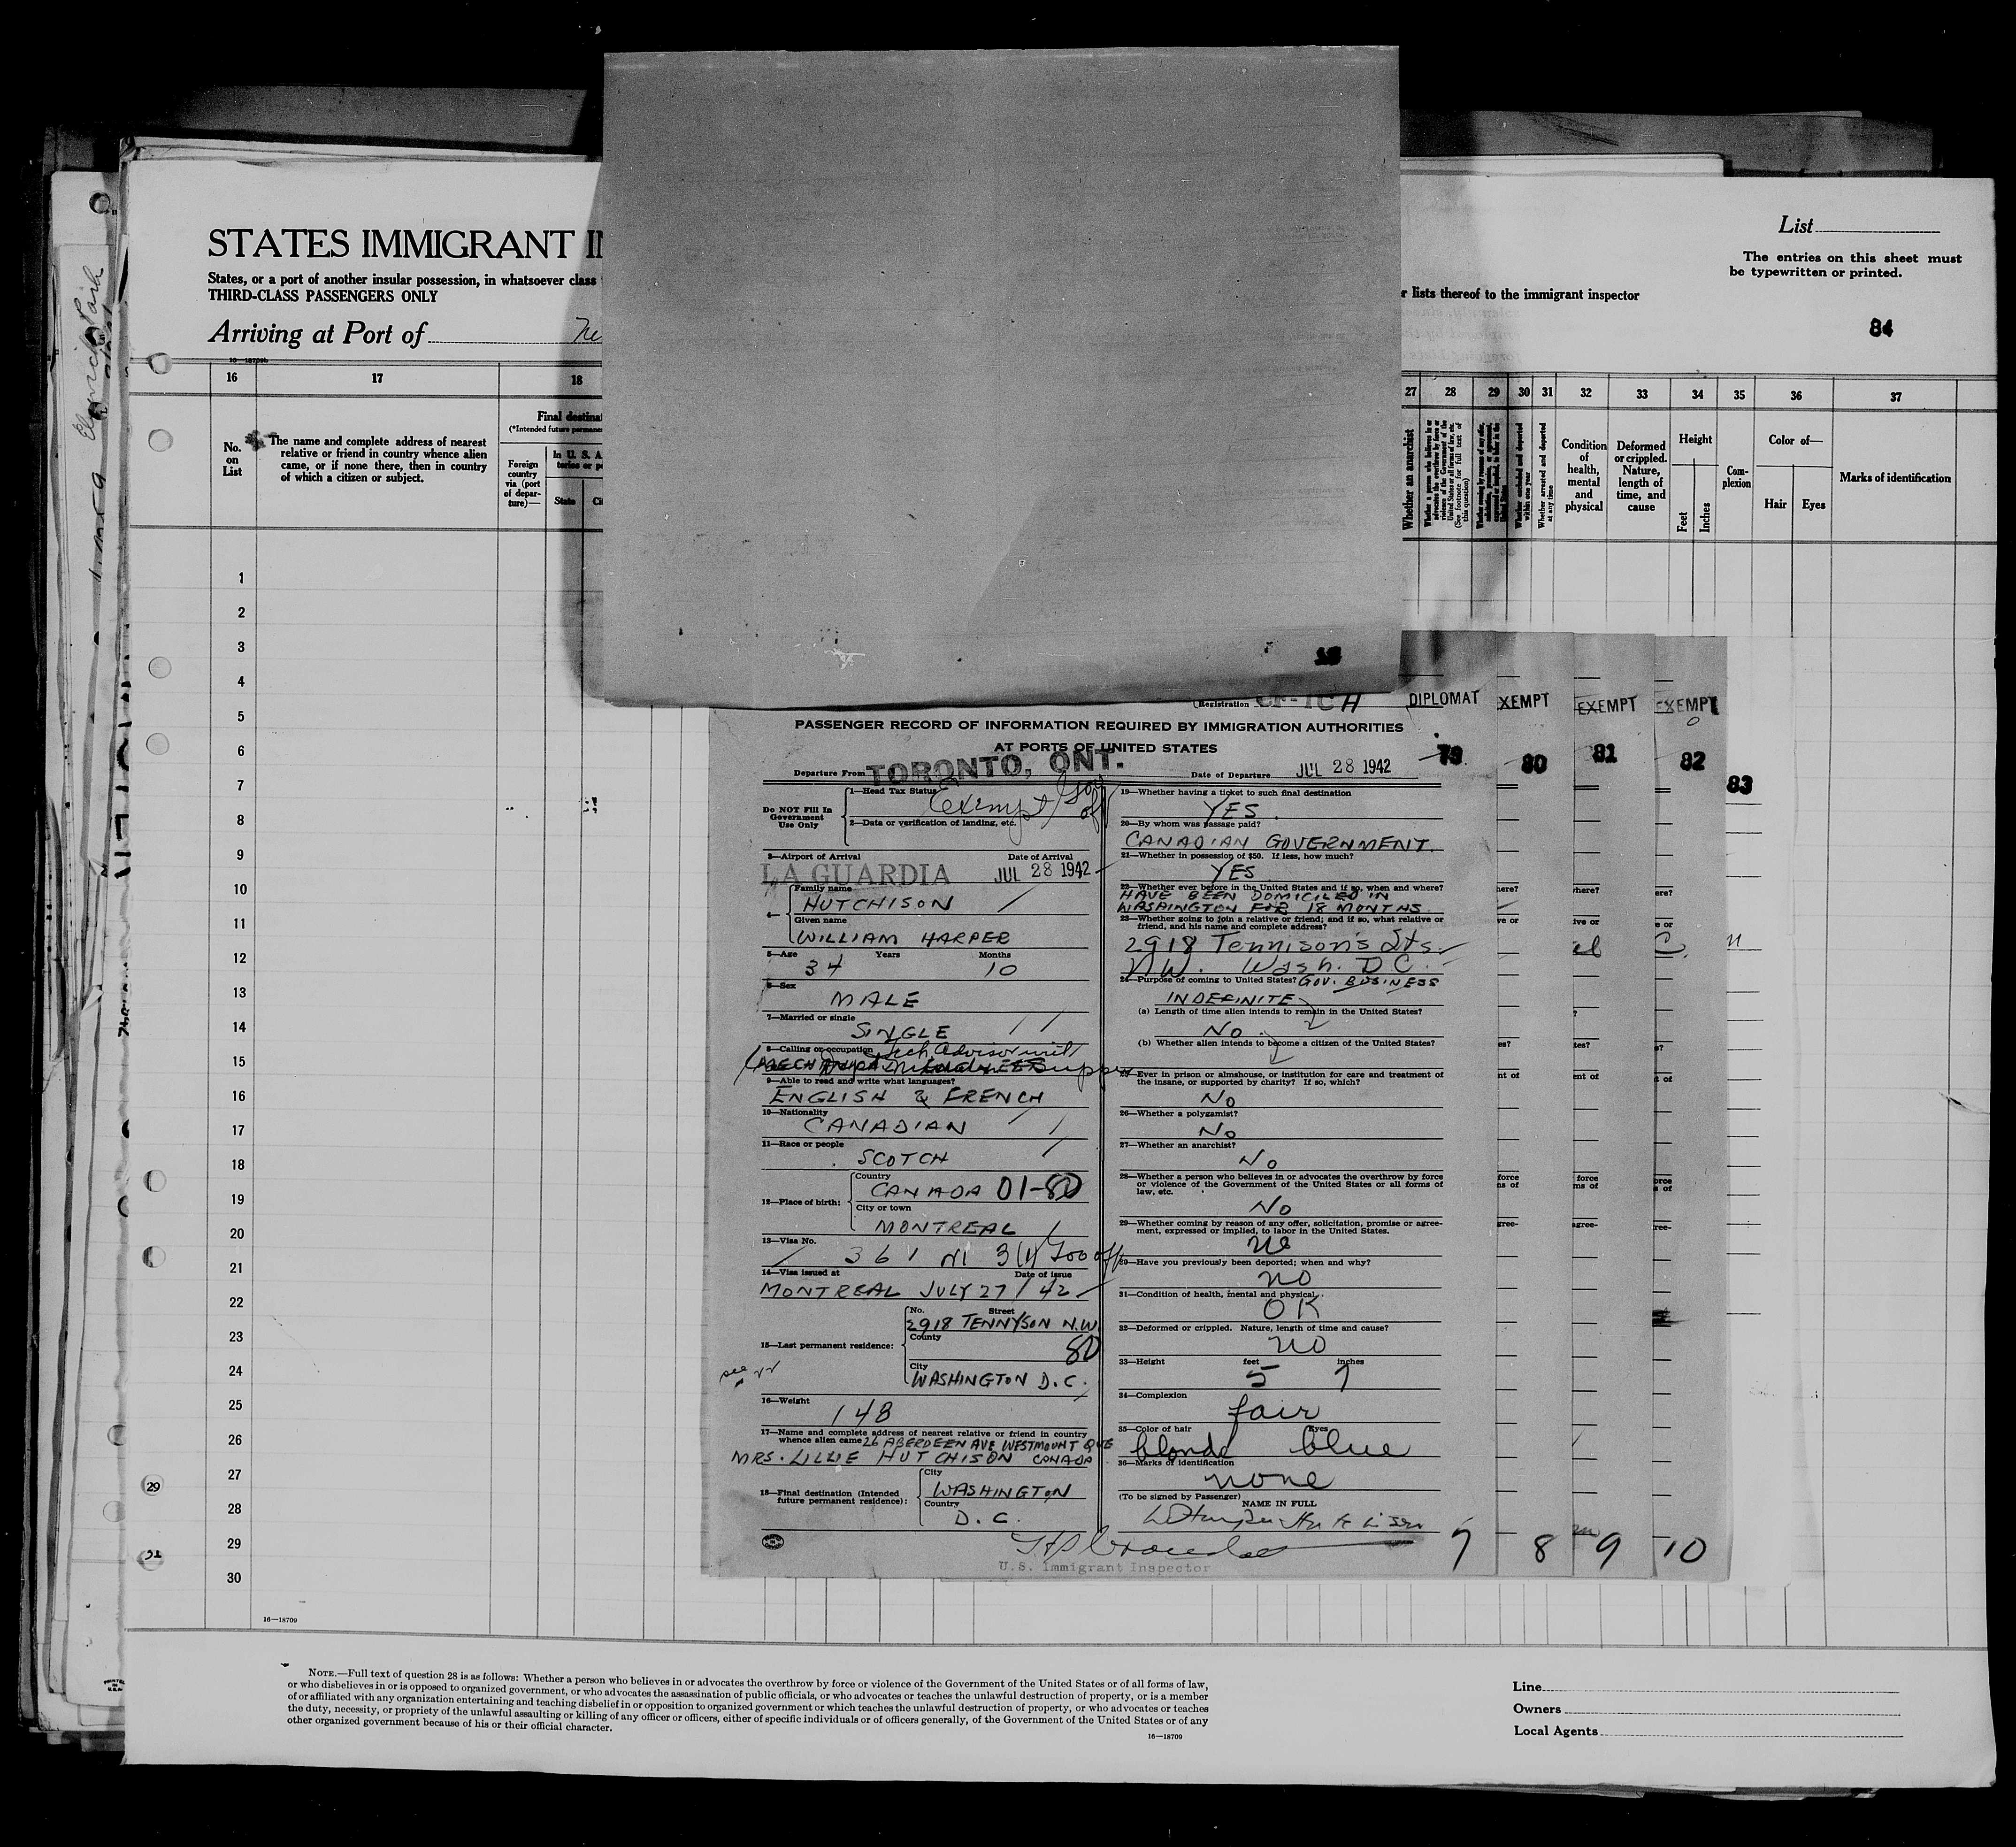 STATES IMMIGRANT
States, or a port of another insular possession, in whatsoever class
THIRD-CLASS PASSENGERS ONLY
Arriving at Port of
r lists thereof to the immigrant inspector
List
The entries on this sheet must
be typewritten or printed.
84
16 17 18 27 28 29 30 31 32 33 34 35 36 37
No.
on
List
The name and complete address of nearest
relative or friend in country whence alien
came, or if none there, then in country
of which a citizen or subject.
Final destina
(*Intended future permane
Foreign
country
via (port
of depar-
ture)—
In U. S. A.
State
Whether an anarchist
(See footnote for full text of
this question)
Whether arrested and deported
at any time
Condition
of
health,
mental
and
physical
Deformed
or crippled.
Nature,
length of
time, and
cause
Height
Feet
Inches
Com-
plexion
Color of—
Hair
Eyes
Marks of identification
1
2
3
4
5
6
7
8
9
10
11
12
13
14
15
16
17
18
19
20
21
22
23
24
25
26
27
28
29
30
29
31
16—18709
Registration
DIPLOMAT
EXEMPT
EXEMPT
EXEMPT
PASSENGER RECORD OF INFORMATION REQUIRED BY IMMIGRATION AUTHORITIES
AT PORTS OF UNITED STATES
79 80 81 82 83
Departure From TORONTO, ONT.
Date of Departure JUL 28 1942
Do NOT Fill In
Government
Use Only
1—Head Tax Status Exempt
2—Data or verification of landing, etc.
3—Airport of Arrival
Date of Arrival
LA GUARDIA JUL 28 1942
4—
Family name
HUTCHISON
Given name
WILLIAM HARPER
5—Age Years Months
34 10
6—Sex
MALE
7—Married or single
SINGLE
8—Calling or occupation Tech Advisor with
9—Able to read and write what languages?
ENGLISH & FRENCH
10—Nationality
CANADIAN
11—Race or people
SCOTCH
12—Place of birth:
Country
CANADA 01-80
City or town
MONTREAL
13—Visa No.
361 NI 3(1)
14—Visa issued at Date of issue
MONTREAL JULY 27/42
15—Last permanent residence:
No. Street
2918 TENNYSON N.W.
County
80
City
WASHINGTON D.C.
16—Weight
148
17—Name and complete address of nearest relative or friend in country
whence alien came 26 ABERDEEN AVE WESTMOUNT QUE
MRS. LILLIE HUTCHISON CANADA
18—Final destination (Intended
future permanent residence):
City
WASHINGTON
Country
D.C.
19—Whether having a ticket to such final destination
YES
20—By whom was passage paid?
CANADIAN GOVERNMENT.
21—Whether in possession of $50. If less, how much?
YES
22—Whether ever before in the United States and if so, when and where?
HAVE BEEN DOMICILED IN
WASHINGTON FOR 18 MONTHS
23—Whether going to join a relative or friend; and if so, what relative or
friend, and his name and complete address?
2918 Tennison's Sts.
N.W. Wash. D C.
24—Purpose of coming to United States? GOV. BUSINESS
INDEFINITE
(a) Length of time alien intends to remain in the United States?
No
(b) Whether alien intends to become a citizen of the United States?
25—Ever in prison or almshouse, or institution for care and treatment of
the insane, or supported by charity? If so, which?
No
26—Whether a polygamist?
No
27—Whether an anarchist?
No
28—Whether a person who believes in or advocates the overthrow by force
or violence of the Government of the United States or all forms of
law, etc.
No
29—Whether coming by reason of any offer, solicitation, promise or agree-
ment, expressed or implied, to labor in the United States.
no
30—Have you previously been deported; when and why?
no
31—Condition of health, mental and physical.
OK
32—Deformed or crippled. Nature, length of time and cause?
no
33—Height feet inches
5 7
34—Complexion
fair
35—Color of hair Eyes
blonde blue
36—Marks of identification
none
(To be signed by Passenger)
NAME IN FULL
U.S. Immigrant Inspector
7 8 9 10
NOTE.—Full text of question 28 is as follows: Whether a person who believes in or advocates the overthrow by force or violence of the Government of the United States or of all forms of law,
or who disbelieves in or is opposed to organized government, or who advocates the assassination of public officials, or who advocates or teaches the unlawful destruction of property, or is a member
of or affiliated with any organization entertaining and teaching disbelief in or opposition to organized government or which teaches the unlawful destruction of property, or who advocates or teaches
the duty, necessity, or propriety of the unlawful assaulting or killing of any officer or officers, either of specific individuals or of officers generally, of the Government of the United States or of any
other organized government because of his or their official character.
16—18709
Line
Owners
Local Agents